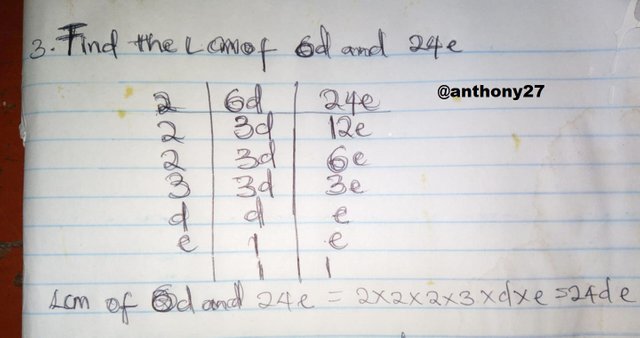 3. Find the Lcm of 6d and 24e
@anthony27
2 6d 24e
2 3d 12e
2 3d 6e
3 3d 3e
d d e
e 1 e
1 1
Lcm of 6d and 24e = 2×2×2×3×d×e=24de